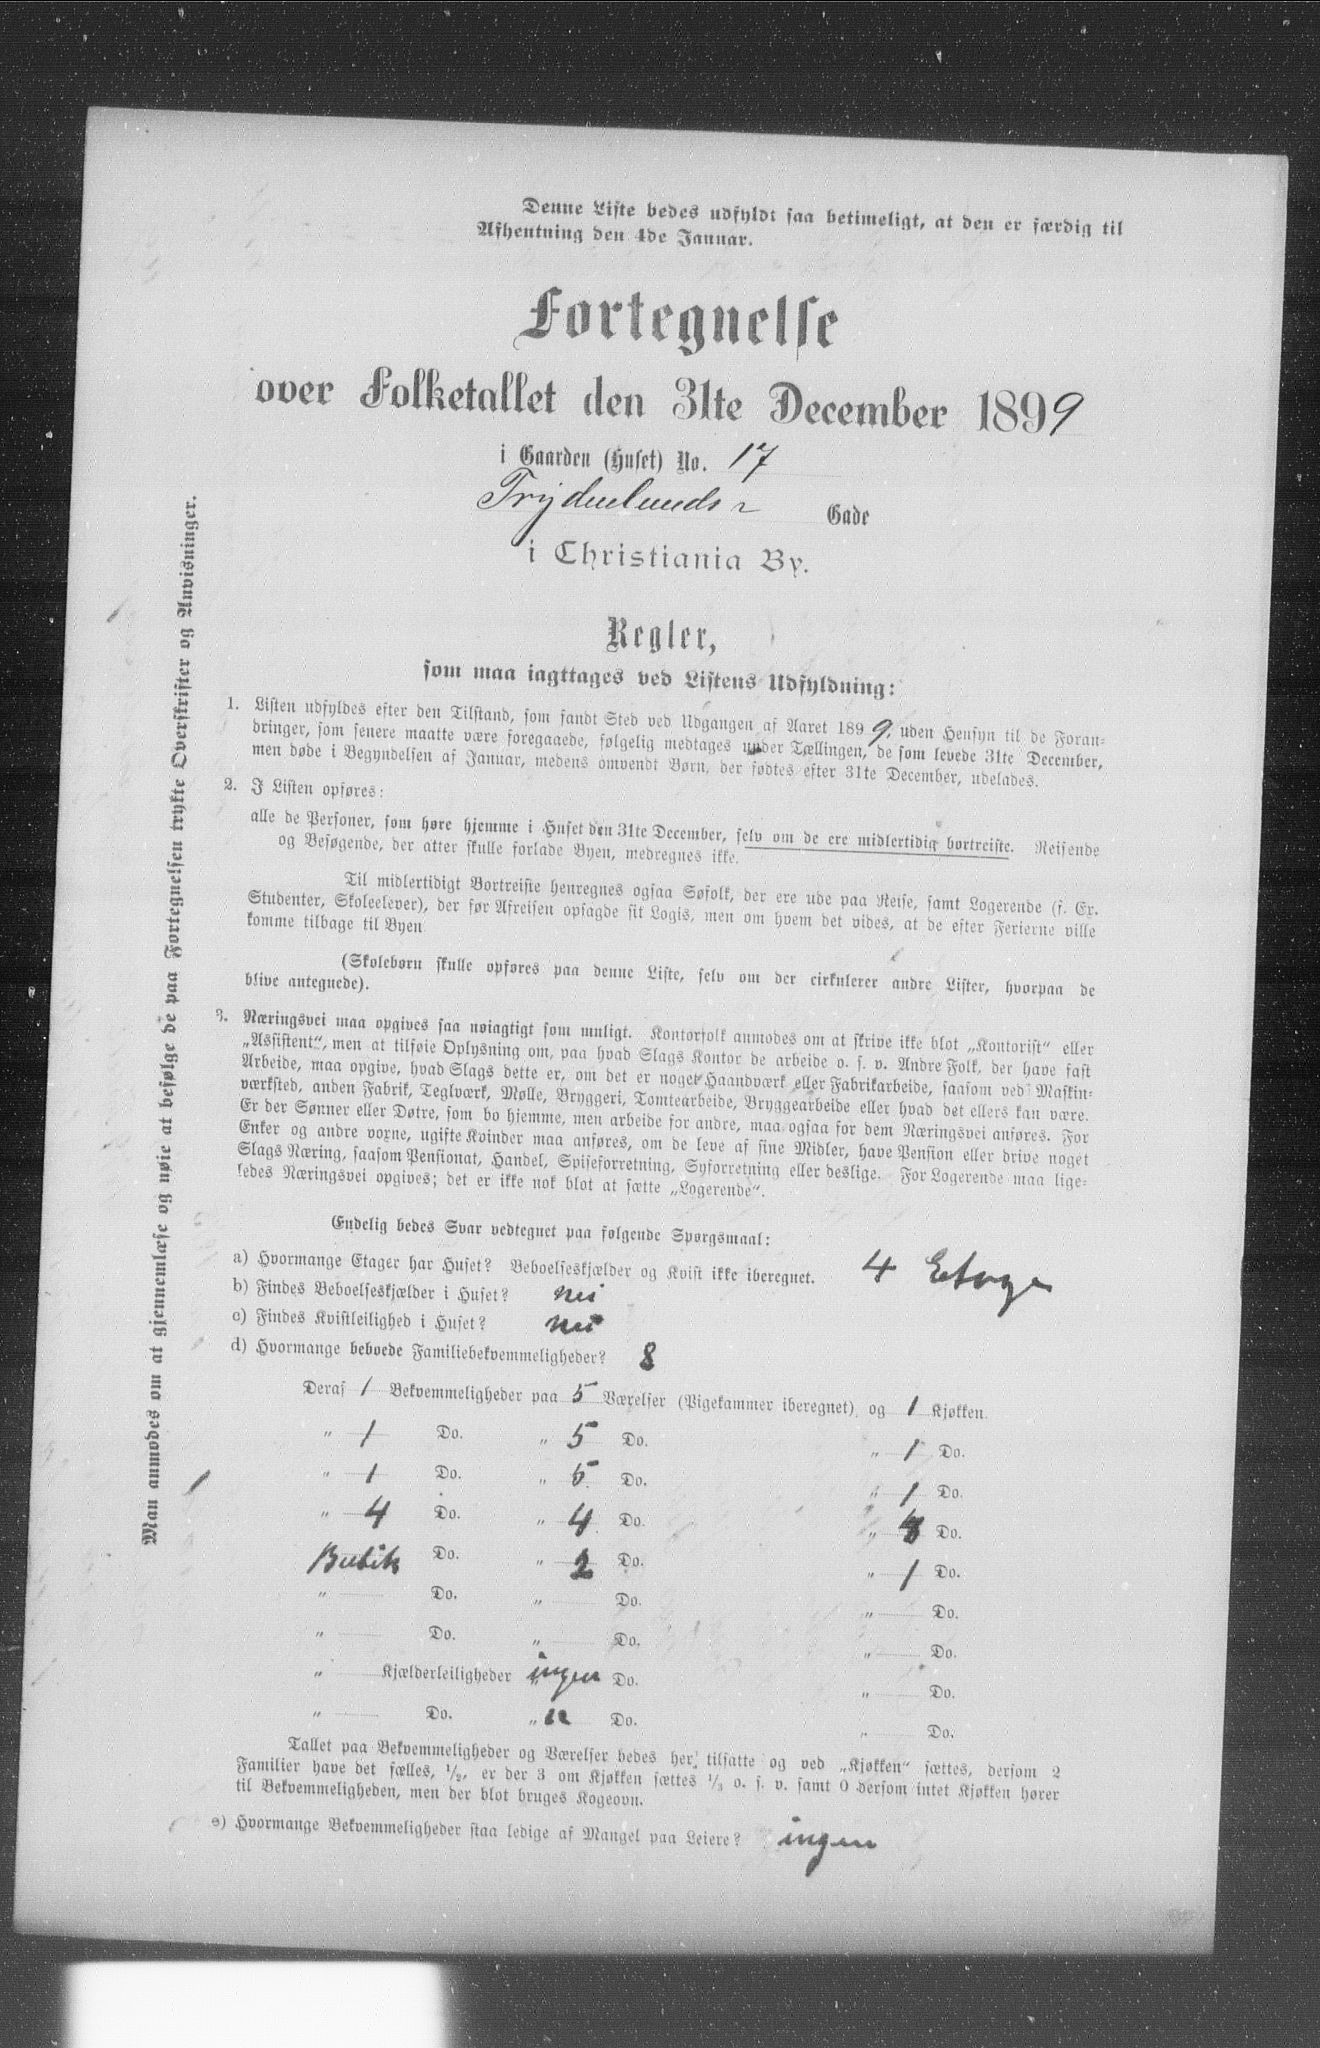 Denne Liste bedes udfyldt saa betimeligt, at den er færdig til
Afhentning den 4de Januar.
Fortegnelse
over Folketallet den 31te December 1899
i Gaarden (Huset) No. 17
Frydenlunds Gade
i Christiania By.
Regler,
som maa iagttages ved Listens Udfyldning:
1. Listen udfyldes efter den Tilstand, som fandt Sted ved Udgangen af Aaret 1899, uden Hensyn til de Foran-
dringer, som senere maatte være foregaaede, følgelig medtages under Tællingen, de som levede 31te December,
men døde i Begyndelsen af Januar, medens omvendt Børn, der fødtes efter 31te December, udelades.
2. I Listen opføres:
alle de Personer, som høre hjemme i Huset den 31te December, selv om de ere midlertidig bortreiste. Reisende
og Besøgende, der atter skulle forlade Byen, medregnes ikke.
Til midlertidigt Bortreiste henregnes ogsaa Søfolk, der ere ude paa Reise, samt Logerende (f. Ex.
Studenter, Skoleelever), der før Afreisen opsagde sit Logis, men om hvem det vides, at de efter Ferierne ville
komme tilbage til Byen
(Skolebørn skulle opføres paa denne Liste, selv om der cirkulerer andre Lister, hvorpaa de
blive antegnede).
3. Næringsvei maa opgives saa nøiagtigt som muligt. Kontorfolk anmodes om at skrive ikke blot „Kontorist“ eller
„Assistent“, men at tilføie Oplysning om, paa hvad Slags Kontor de arbeide o. s. v. Andre Folk, der have fast
Arbeide, maa opgive, hvad Slags dette er, om det er noget Haandværk eller Fabrikarbeide, saasom ved Maskin-
værksted, anden Fabrik, Teglværk, Mølle, Bryggeri, Tomtearbeide, Bryggearbeide eller hvad det ellers kan være.
Er der Sønner eller Døtre, som bo hjemme, men arbeide for andre, maa ogsaa for dem Næringsvei anføres. For
Enker og andre voxne, ugifte Kvinder maa anføres, om de leve af sine Midler, have Pension eller drive noget
Slags Næring, saasom Pensionat, Handel, Spiseforretning, Syforretning eller deslige. For Logerende maa lige-
ledes Næringsvei opgives; det er ikke nok blot at sætte „Logerende“.
Endelig bedes Svar vedtegnet paa følgende Spørgsmaal:
a) Hvormange Etager har Huset? Beboelseskjælder og Kvist ikke iberegnet. 4 Etage
b) Findes Beboelseskjælder i Huset? nei
c) Findes Kvistleilighed i Huset? nei
d) Hvormange beboede Familiebekvemmeligheder? 8
Deraf 1 Bekvemmeligheder paa 5 Værelser (Pigekammer iberegnet) og 1 Kjøkken.
„ 1 Do. „ 5 Do. „ 1 Do.
„ 1 Do. „ 5 Do. „ 1 Do.
„ 4 Do. „ 4 Do. „ Do.
Butik Do. „ 2 Do. „ 1 Do.
„ Do. „ Do. „ Do.
„ Do. „ Do. „ Do.
„ Kjælderleiligheder ingen Do. „ Do.
„ Do. „ Do. „ Do.
Tallet paa Bekvemmeligheder og Værelser bedes her tilsatte og ved „Kjøkken“ sættes, dersom 2
Familier have det fælles, 1/2, er der 3 om Kjøkken sættes 1/3 o. s. v. samt 0 dersom intet Kjøkken hører
til Bekvemmeligheden, men der blot bruges Kogeovn.
e) Hvormange Bekvemmeligheder staa ledige af Mangel paa Leiere? ingen
Man anmodes om at gjennemlæse og nøie at befølge de paa Fortegnelsen trykte Overskrifter og Anvisninger.